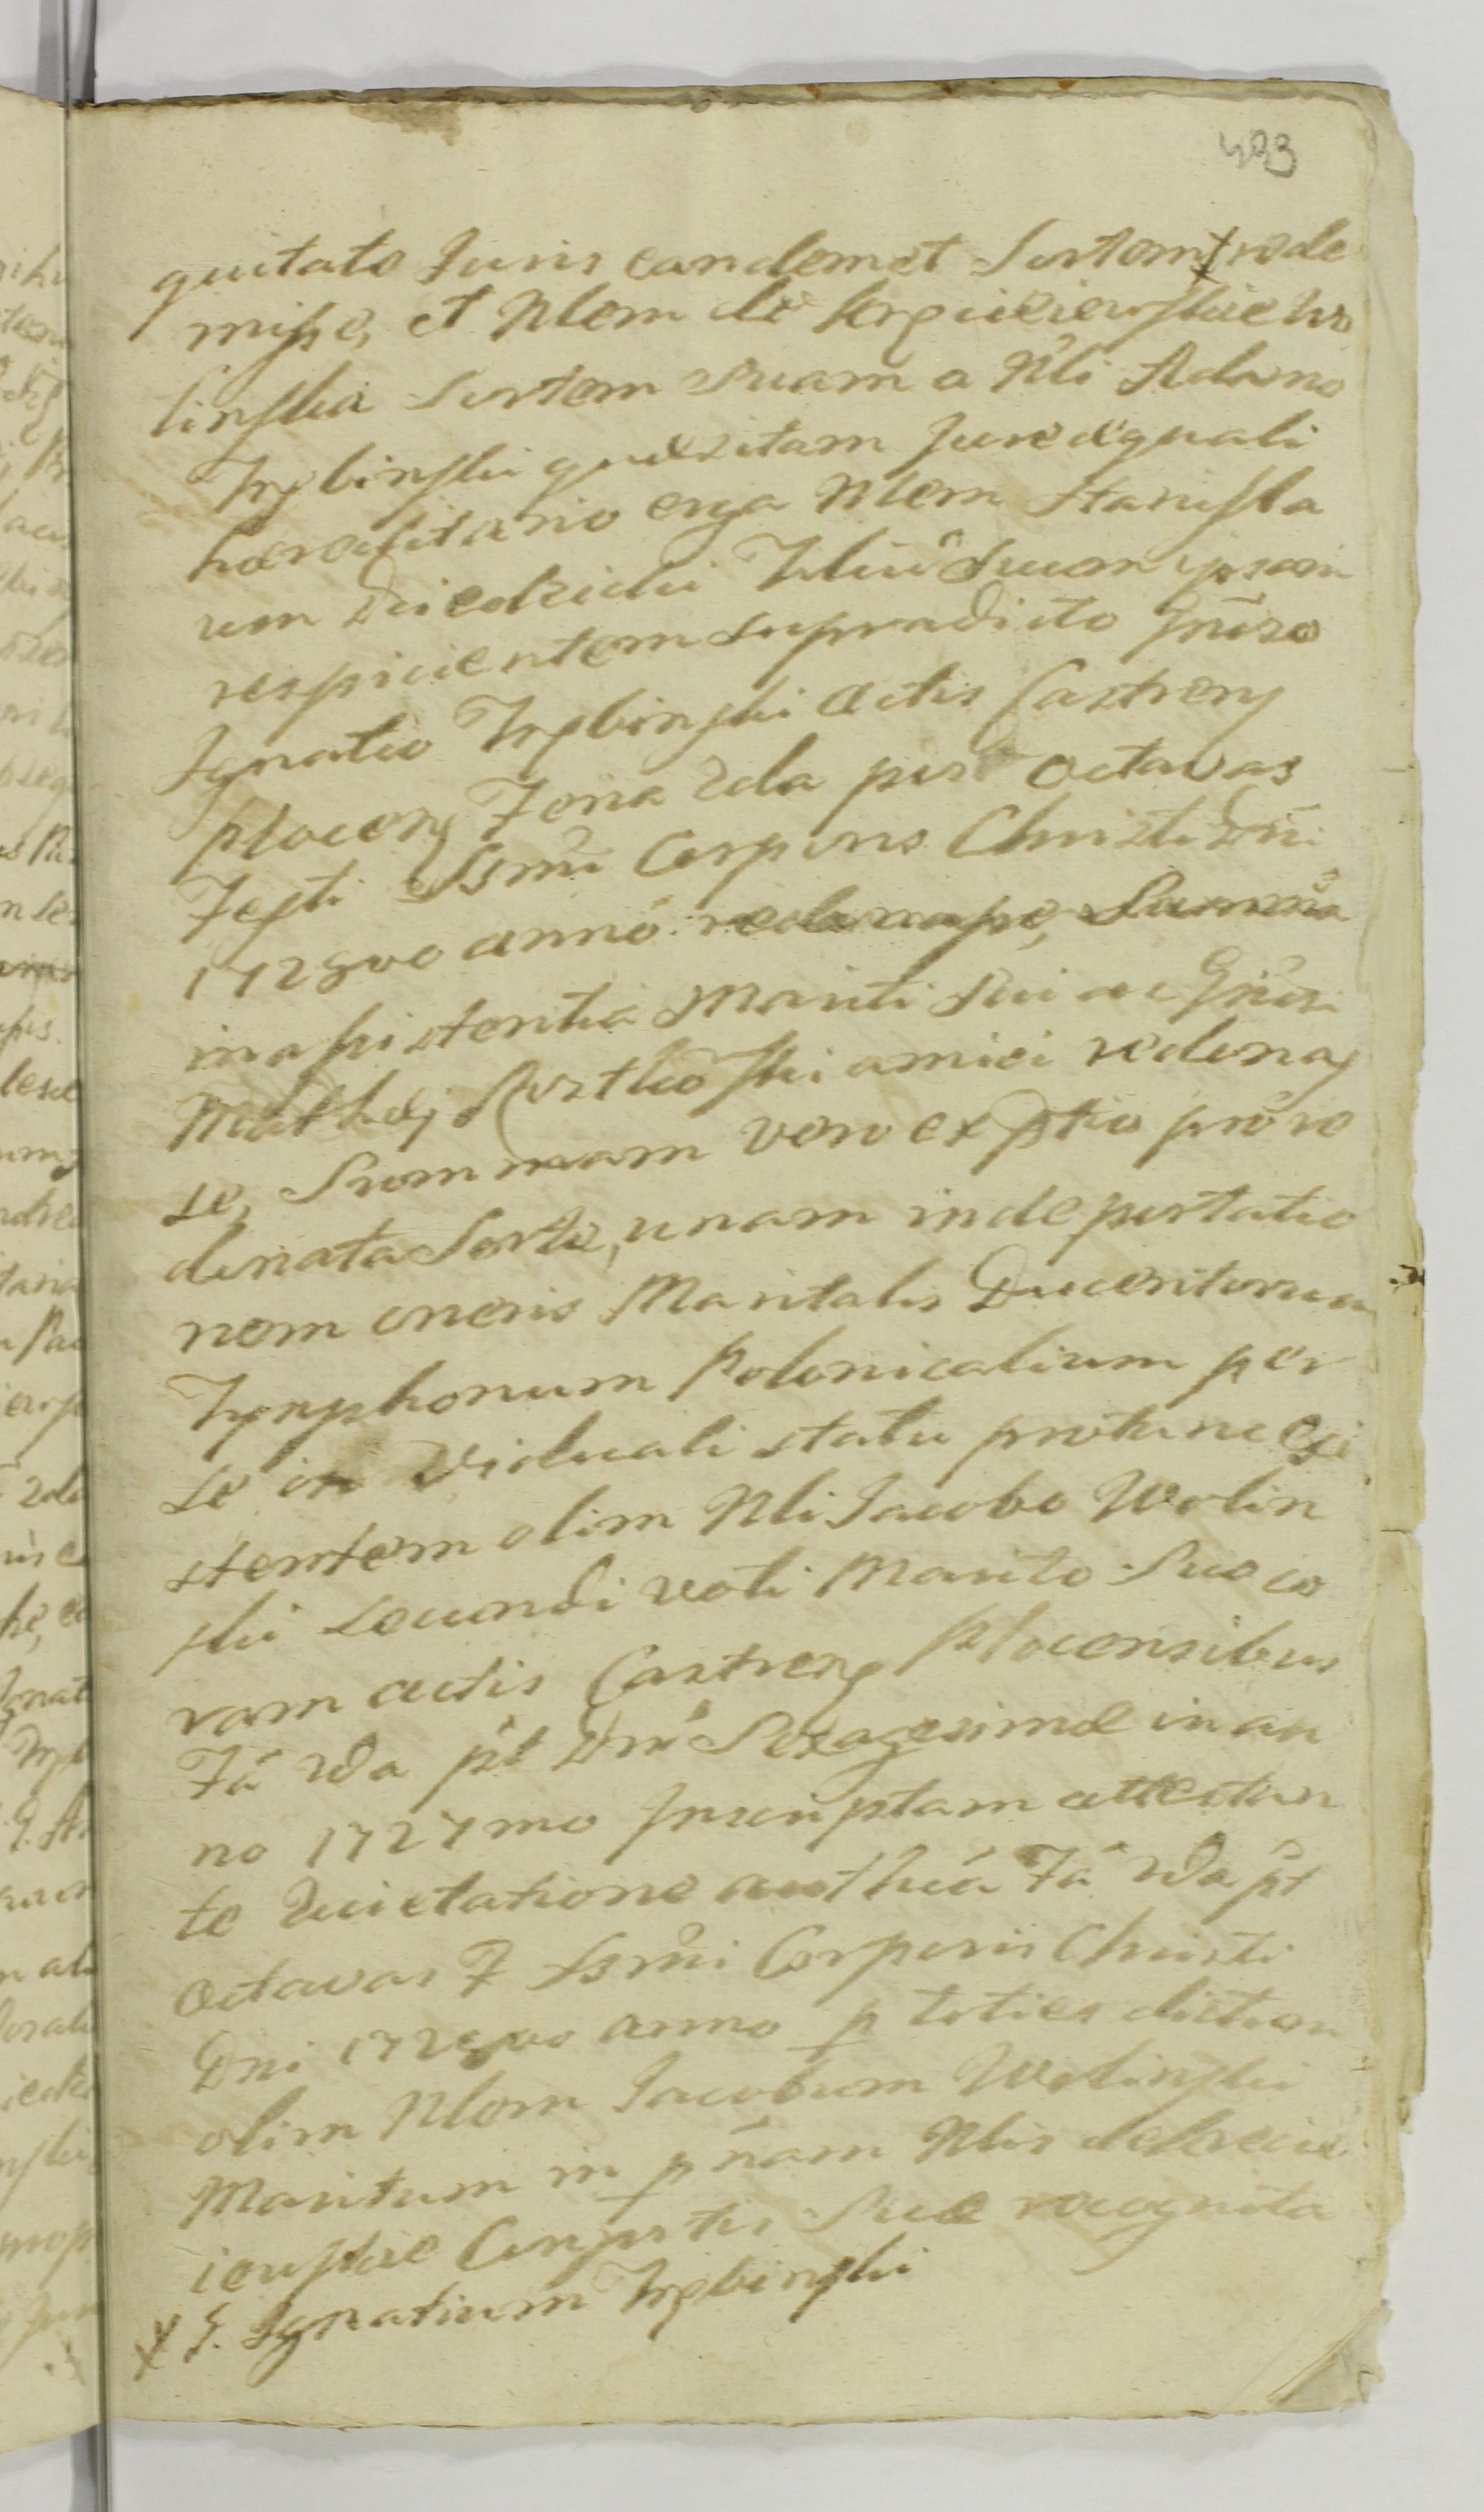 493
quitate Juris eandemet Sortem ✗ rede
misse, et Nlem de Krpicieiewskie Wo
linska Sortem Suam a Nli Adamo
Trębinski quæsitam Jure æquali
hæreditario erga Nlem Stanisla
um Dziedzicki Filiũ Suum ipsam
respicientem supradicto Gñroso
Ignatio Trębinski Actis Castreny
Ploceny Feria 2da post Octavas
Festi SSmi Corporis Christi Dñi
1728vo anno
in assistentia Mariti Sui ac Gñrosi
Matthæj amici redonas
se, Summam vero ex ptio pro re
donata Sorte, unam in depertatio
nem oneris Maritalis Ducentorum
Tymphonum Polonicalium per
se in Viduali statu protunc exi
stentem olim Nli Jacobo Wolin
ski secundi voti Marito Suo co
ram actis Castreny Plocensibus
Fã 2da pt Dñi Sexagesimæ in an
no 1727mo Inscriptam attestan
te Quietatione authẽa Fã 2da pt
Octavas F SSmi Corporis Christi
Dni 1728vo anno p toties dictum
olim Nlem Jacobum Wolinski
Maritum in pñam Nlis
iewskie Consortis Suæ recognita
✗ G. Ignatium Trębinski